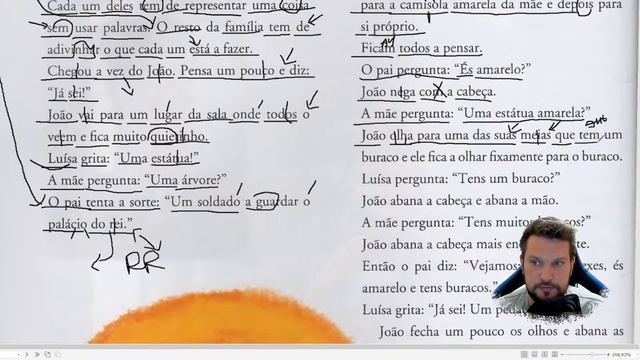 Cada um deles tem de representar uma coisa
sem usar palavras. O resto da família tem de
adivinhar o que cada um está a fazer.
Chegou a vez do João. Pensa um pouco e diz:
“Já sei!”
João vai para um lugar da sala onde todos o
veem e fica muito quietinho.
Luísa grita: “Uma estátua!”
A mãe pergunta: “Uma árvore?”
O pai tenta a sorte: “Um soldado a guardar o
palácio do rei.”
RR
para a camisola amarela da mãe e depois para
si próprio.
Ficam todos a pensar.
O pai pergunta: “És amarelo?”
João nega com a cabeça.
A mãe pergunta: “Uma estátua amarela?”
João olha para uma das suas meias que tem um
buraco e ele fica a olhar fixamente para o buraco.
Luísa pergunta: “Tens um buraco?”
João abana a cabeça e abana a mão.
A mãe pergunta: “Tens muitos
João abana a cabeça mais
Então o pai diz: “Vejamos
amarelo e tens buracos.”
Luísa grita: “Já sei! Um
João fecha um pouco os olhos e abana as
248,43%